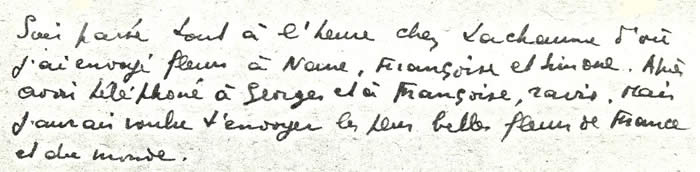 Suis passé tout à l'heure chez Lachaume d'où
j'ai envoyé fleurs à Name, Françoise et Simone. Après
avoir téléphoné à Georges et à Françoise, ravis. Mais
j'aurais voulu t'envoyer les plus belles fleurs de France
et du monde.